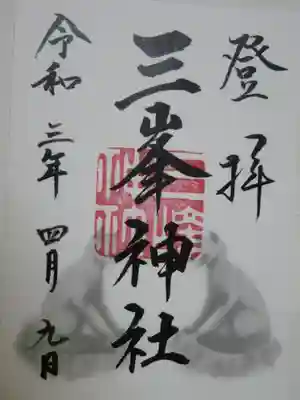 登拝
三峯神社
令和三年四月九日